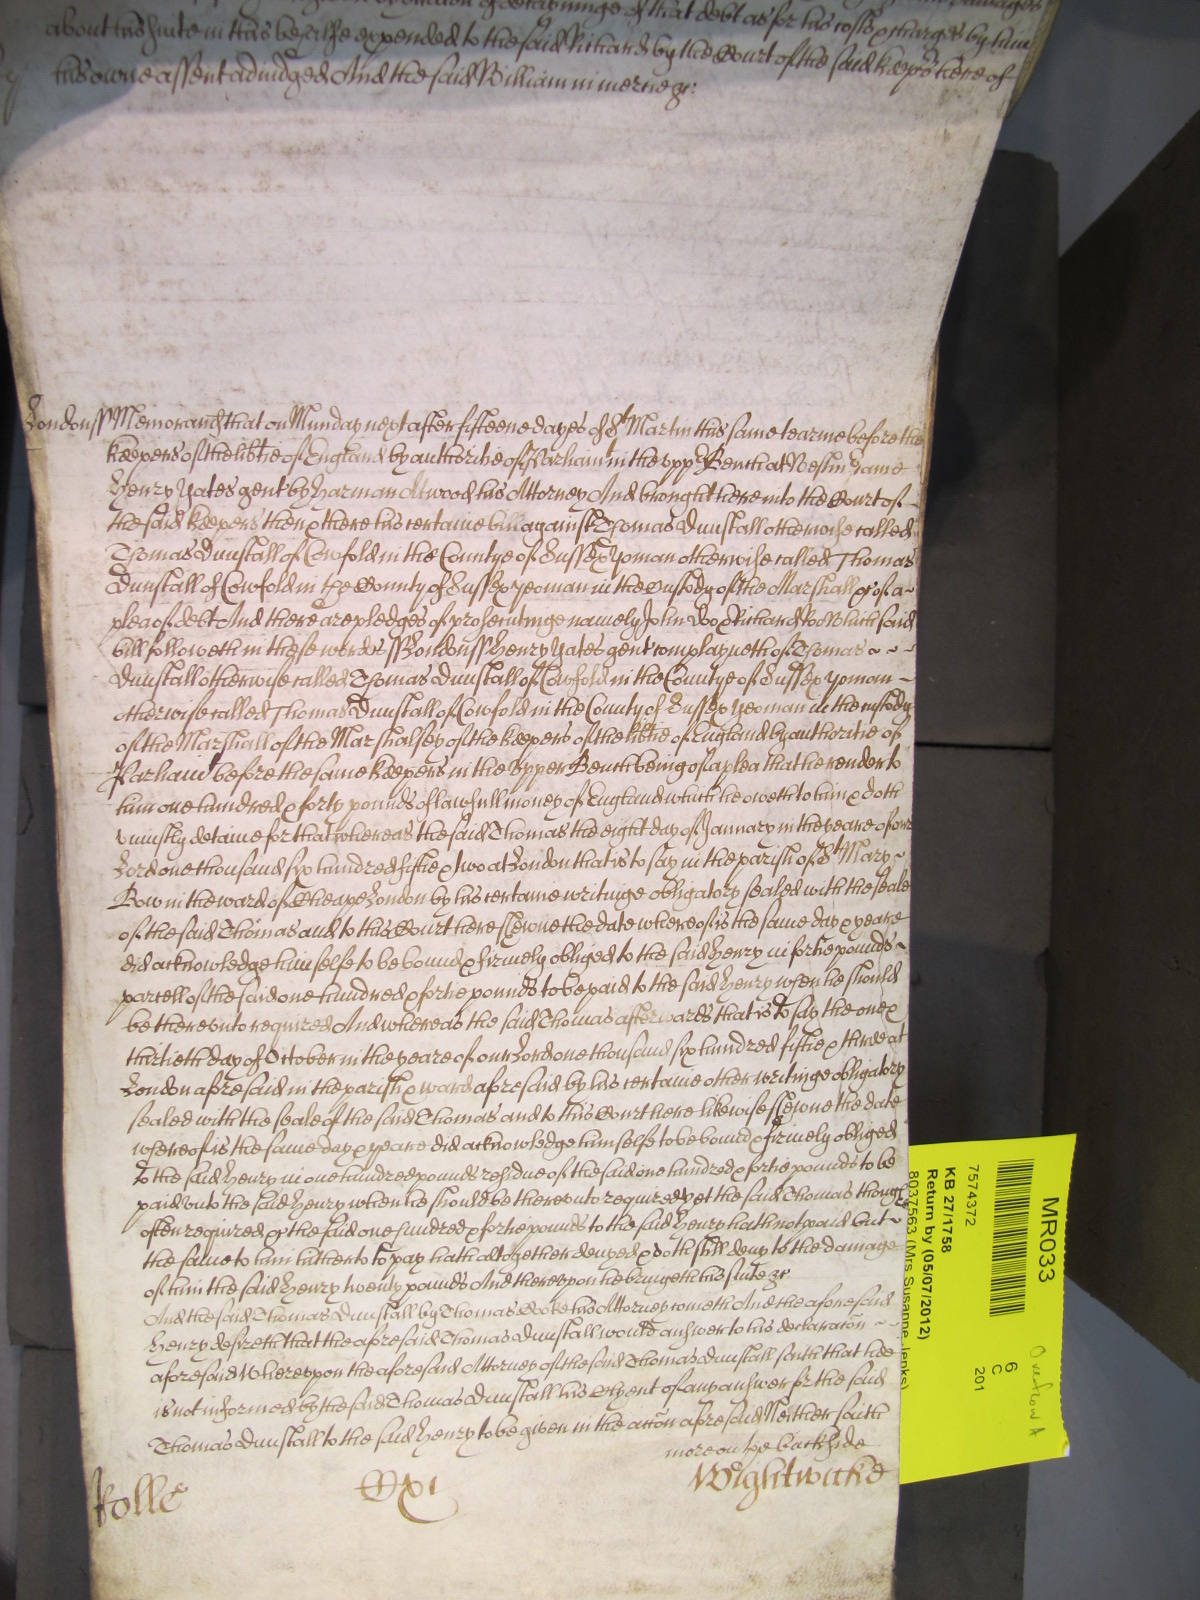 about his suite in this behalfe expended to the said Richard by the Court of the said keepers here of
his owne assent adiudged And the said William in mercie &c:
London ss Memorand that on Munday next after fifteene dayes of St Martin this same tearme before the
keepers of the libtie of England by authoritie of Parliamt in the upp Bench at Westm Came
Henry Yates gent by Harman Atwood his Attorney And brought here into the Court of
the said keepers then & there his certaine bill against Thomas Dunstall otherwise called
Thomas Dunstall of Cowfold in the Countye of Sussex Yoman otherwise called Thomas
Dunstall of Cowfold in the County of Sussex yeoman in the Custody of the Marshall &c of a
plea of debt And there are pledges of prosecutinge namely John Doo & Richard Roo Which said
bill followeth in these words ss London ss Henry Yates gent complayneth of Thomas
Dunstall otherwise called Thomas Dunstall of Cowfold in the Countye of Sussex yoman
otherwise called Thomas Dunstall of Cowfold in the County of Sussex yeoman in the custody
of the Marshall of the Marshalsey of the keepers of the libtie of England by authoritie of
Parliamt before the same keepers in the Upper Bench being of a plea that he render to
him one hundred & forty pounds of lawfull money of England which he oweth to him & doth
uniustly detaine for that whereas the said Thomas the eight day of January in the yeare of our
Lord one thousand six hundred fiftie & two at London that is to say in the parish of St Mary
Bow in the ward of Cheape London by his certaine writinge obligatory sealed with the seale
of the said Thomas and to this Court here shewne the date whereof is the same day & yeare
did acknowledge himselfe to be bound & firmely obliged to the said Henry in fortie pounds
parcell of the said one hundred & fortie pounds to be paid to the said Henry when he should
be thereunto required And whereas the said Thomas afterwards that is to say the one &
thirtieth day of October in the yeare of our Lord one thousand six hundred fiftie & three at
London aforesaid in the parish & ward aforesaid by his certaine other writinge obligatory
sealed with the seale of the said Thomas and to this Court here likewise shewne the date
whereof is the same day & yeare did acknowledge himselfe to be bound & firmely obliged
to the said Henry in one hundred pounds residue of the said one hundred & fortie pounds to be
paid unto the said Henry when he should be thereunto required yet the said Thomas though
often required &c the said one hundred & fortie pounds to the said Henry hath not paid but
the same to him hitherto to pay hath altogether denyed & doth still deny to the damage
of him the said Henry twenty pounds And thereupon he bringeth his suite &c
And the said Thomas Dunstall by Thomas Coke his Attorney cometh And the aforesaid
Henry desireth that the aforesaid Thomas Dunstall would answer to his declaracon
aforesaid Whereupon the aforesaid Attorney of the said Thomas Dunstall saith that hee
is not informed by the said Thomas Dunstall his Clyent of any answer for the said
Thomas Dunstall to the said Henry to be given in the accon aforesaid Neither saith
more on the backside
Rolle
Wightwicke
MR033
6
C
201
7574372
KB 27/1758
Return by (05/07/2012)
8037563 (Mrs Susanne Jenks)